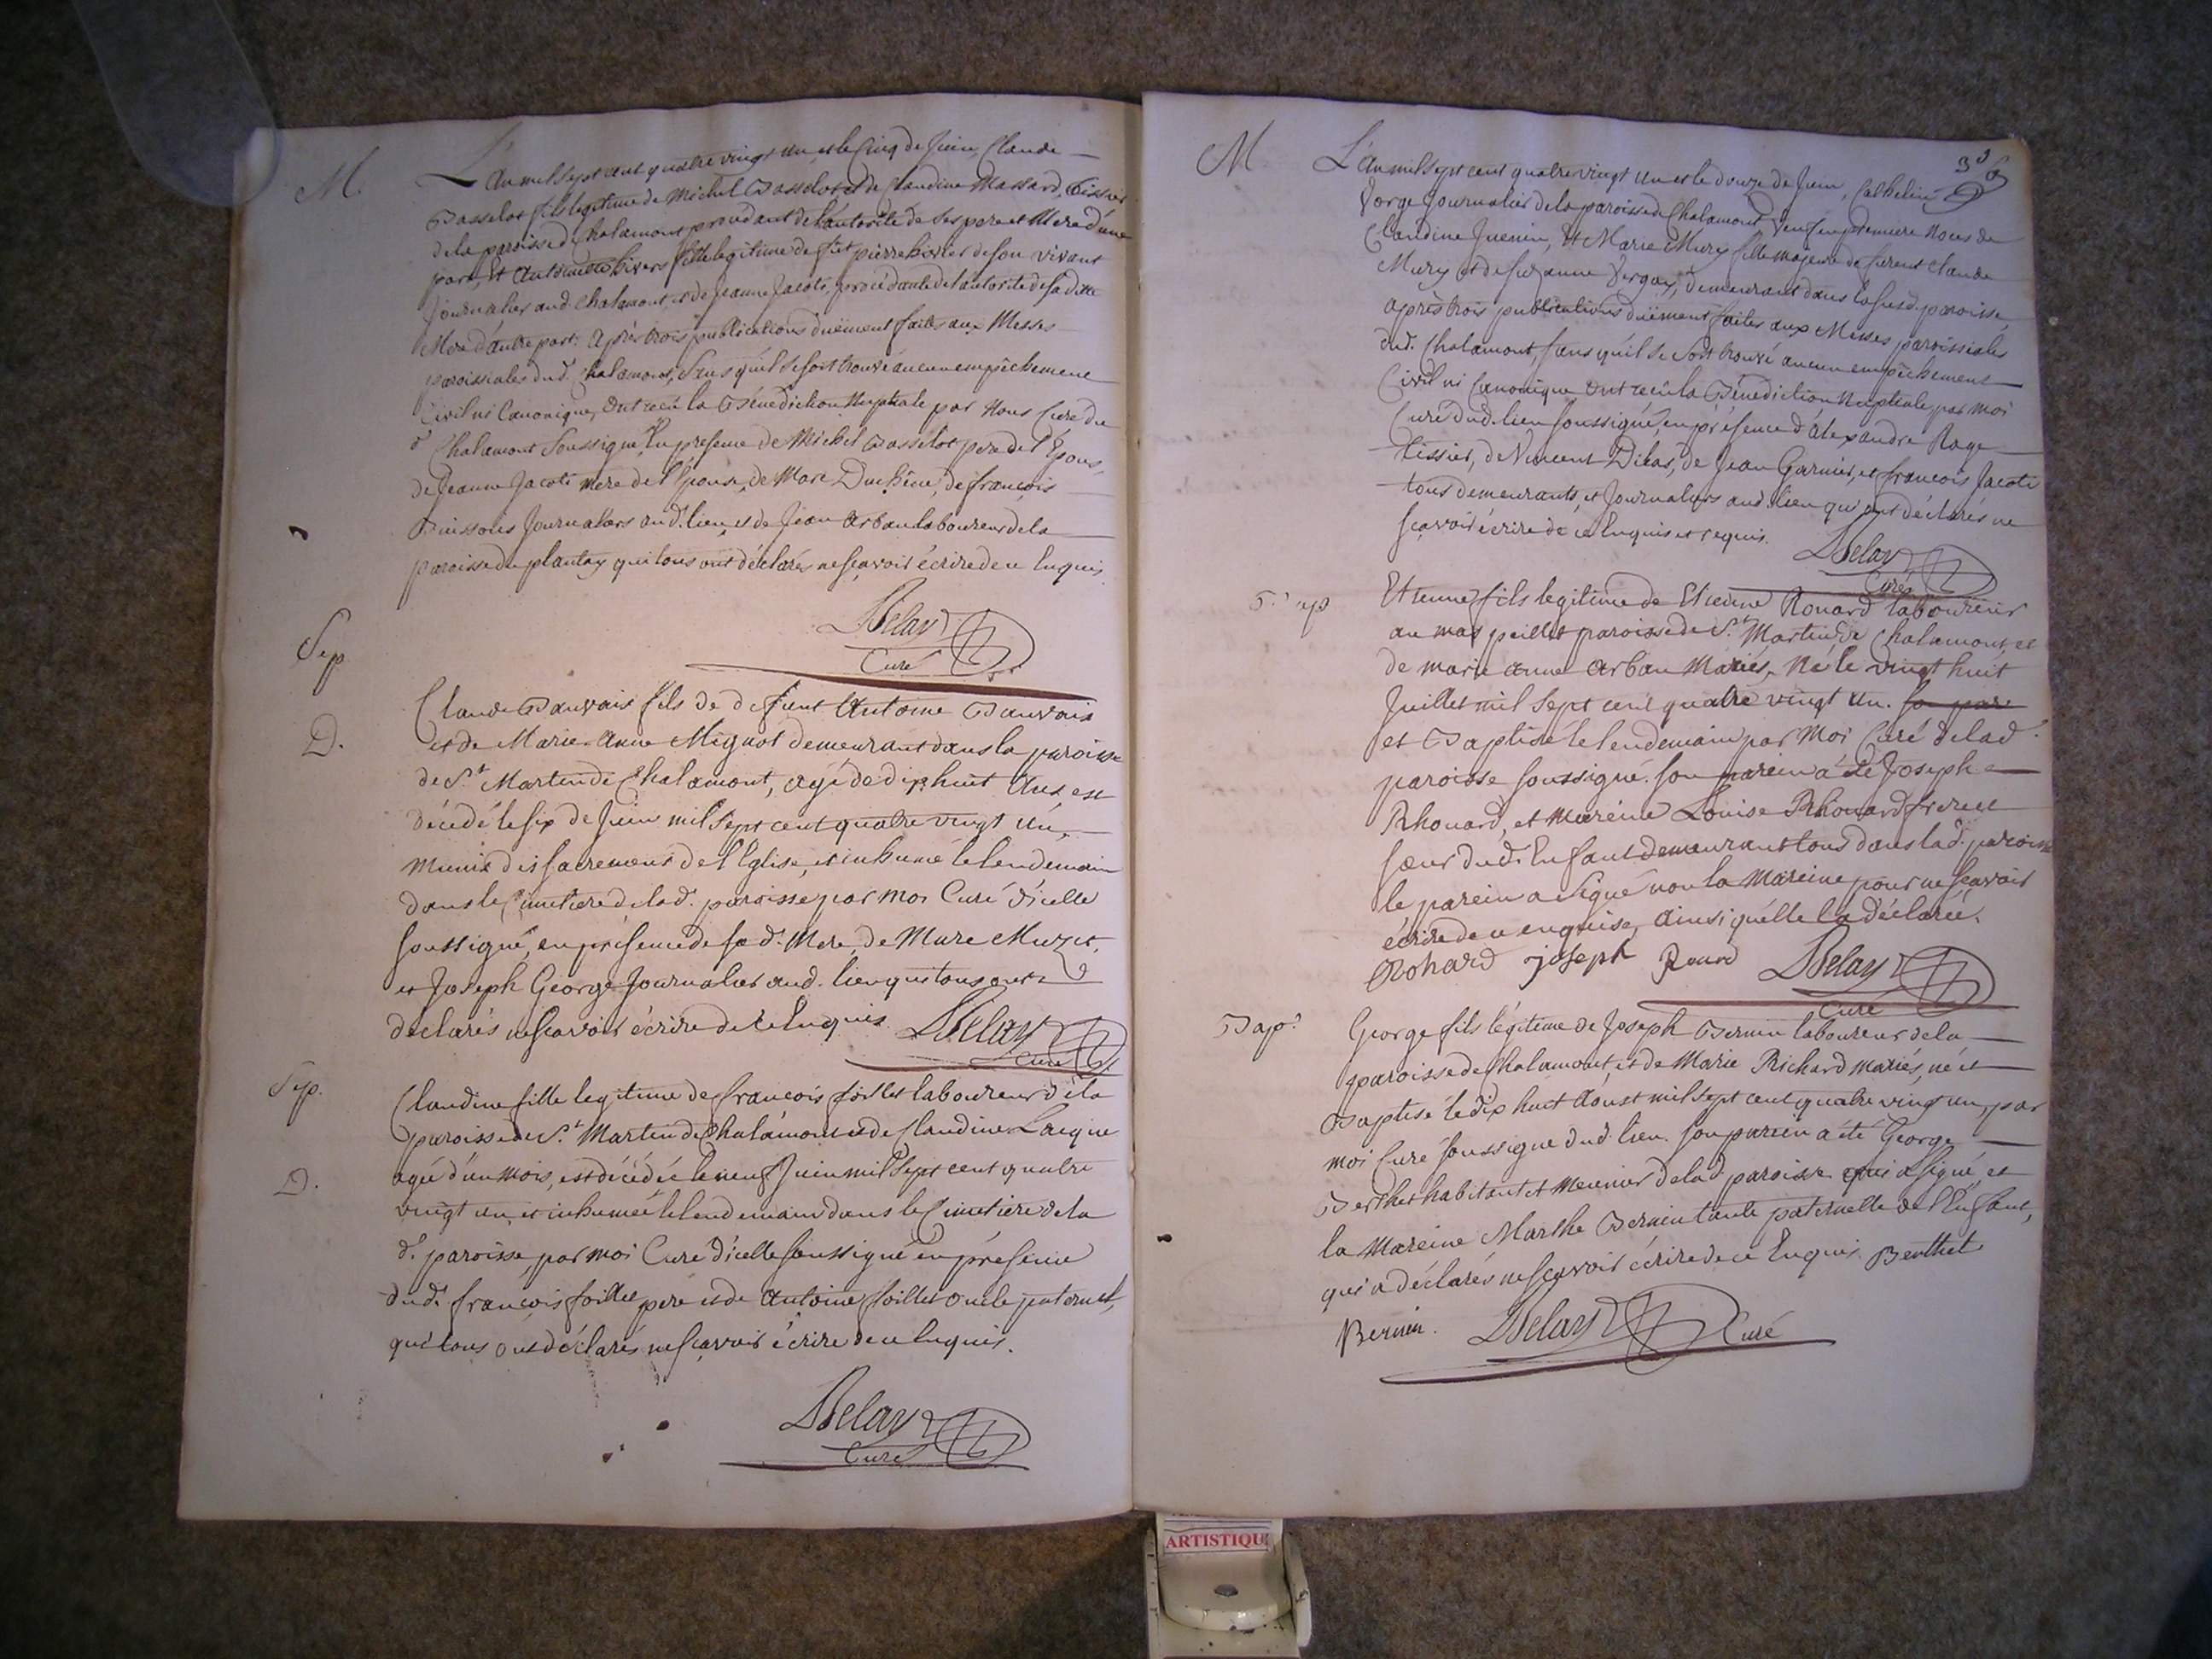 M.
L'an mil sept cent quatre vingt un et le Cinq de Juin, Claude
Basselot fils legitime de Michel Basselot et de Claudine Massard, tissier
de la paroisse de Chalamont procédant de l'autorité de ses pere et Mere d'une
part, Et Antoinette hivers fille legitime de fût pierre hivier de son vivant
Journalier aud. Chalamont, et de Jeanne Jacoti, procédante de l'autorité de sa ditte
Mere d'autre part. Après trois publications duëment faites aux Messes
paroissiales dud. Chalamont, Sans qu'il se soit trouvé aucun empêchement
Civil ni Canonique, Ont reçu la Bénédiction Nuptiale par Nous Curé du
d. Chalamont Soussigné, En presence de Michel Basselot pere de l'Epoux,
de Jeanne Jacoti mere de l'Epouse, de Marc Duchêne, de françois
Buissons Journaliers aud. lieu, et de Jean Arban laboureur de la
paroisse du plantay qui tous ont déclarés ne sçavoir écrire de ce Enquis.
Delay
Curé
Sep
D.
Claude Bauvais fils de defunt Antoine Bauvais
et de Marie Anne Mignot demeurant dans la paroisse
de St Martin de Chalamont, agé de dix huit Ans est
décédé le six de Juin mil sept cent quatre vingt un,
Munis des sacremens de l'Eglise, et inhumé le lendemain
dans le Cimetiere de lad. paroisse par moi Curé d'icelle
soussigné, en présence de sa d. Mere, de Mure Muzit,
et Joseph George Journalier aud. lieu qui tous ont
déclarés ne sçavoir écrire de ce Enquis. Delay
Curé
Sep.
D.
Claudine fille legitime de françois foillet laboureur de la
paroisse de St Martin de Chalamont et de Claudine Lacque
agée d'un mois, est décédée le neuf Juin mil sept cent quatre
vingt un, et inhumée le lendemain dans le Cimetiere de la
d. paroisse, par moi Curé d'icelle soussigné en présence
dud. françois foillet pere et de Antoine foillet oncle paternel,
qui tous ont déclarés ne sçavoir écrire de ce enquis.
Delay
Curé
36
M
L'an mil sept cent quatre vingt un et le douze de Juin, Cathelin
Vorge Journalier de la paroisse de Chalamont veuf en premiere Noces de
Claudine Juenin, Et Marie Mury fille majeure de furent Claude
Mury et de suzanne Vergay, demeurant dans la susd. paroisse,
après trois publications duëment faites aux Messes paroissiales
dud. Chalamont, sans qu'il se soit trouvé aucun empêchement
Civil ni Canonique Ont reçu la Bénédiction Nuptiale par moi
Curé dud. lieu soussigné, en présence d'alexandre Rage
tissier, de Vincent Dibas, de Jean Garnier, et françois Jacoti
tous demeurants, et Journaliers aud. lieu qui ont déclarés ne
sçavoir écrire de ce Enquis et requis.
Delay
Curé
Bap
Etienne fils legitime de Etienne Rouard laboureur
au mas peillet paroisse de St Martin de Chalamont, et
de marie anne arban Mariés, Né le vingt huit
Juillet mil sept cent quatre vingt un. son par
et Baptisé le lendemain par Moi Curé de lad.
paroisse soussigné. son parein a été Joseph
Rhouard, et mareine Louise Rhouard frere et
sœur dud. Enfant demeurant tous dans lad. paroisse
le parein a signé non la Mareine pour ne sçavoir
écrire de ce enquise, ainsi qu'elle l'a déclarée.
Rohard joseph Rouard Delay
Curé
Bap.
George fils légitime de Joseph Bernin laboureur de la
paroisse de Chalamont, et de Marie Richard mariés, né et
Baptisé le dix huit Aoust mil sept cent quatre vingt un, par
moi Curé soussigné dud. lieu. son parein a été George
Berthet habitant et Meunier de lad. paroisse qui a signé, et
la Mareine Marthe Bernin tante paternelle de l'Enfant,
qui a déclarés ne sçavoir écrire de ce Enquis. Berthet
Bernin. Delay Curé
ARTISTIQU